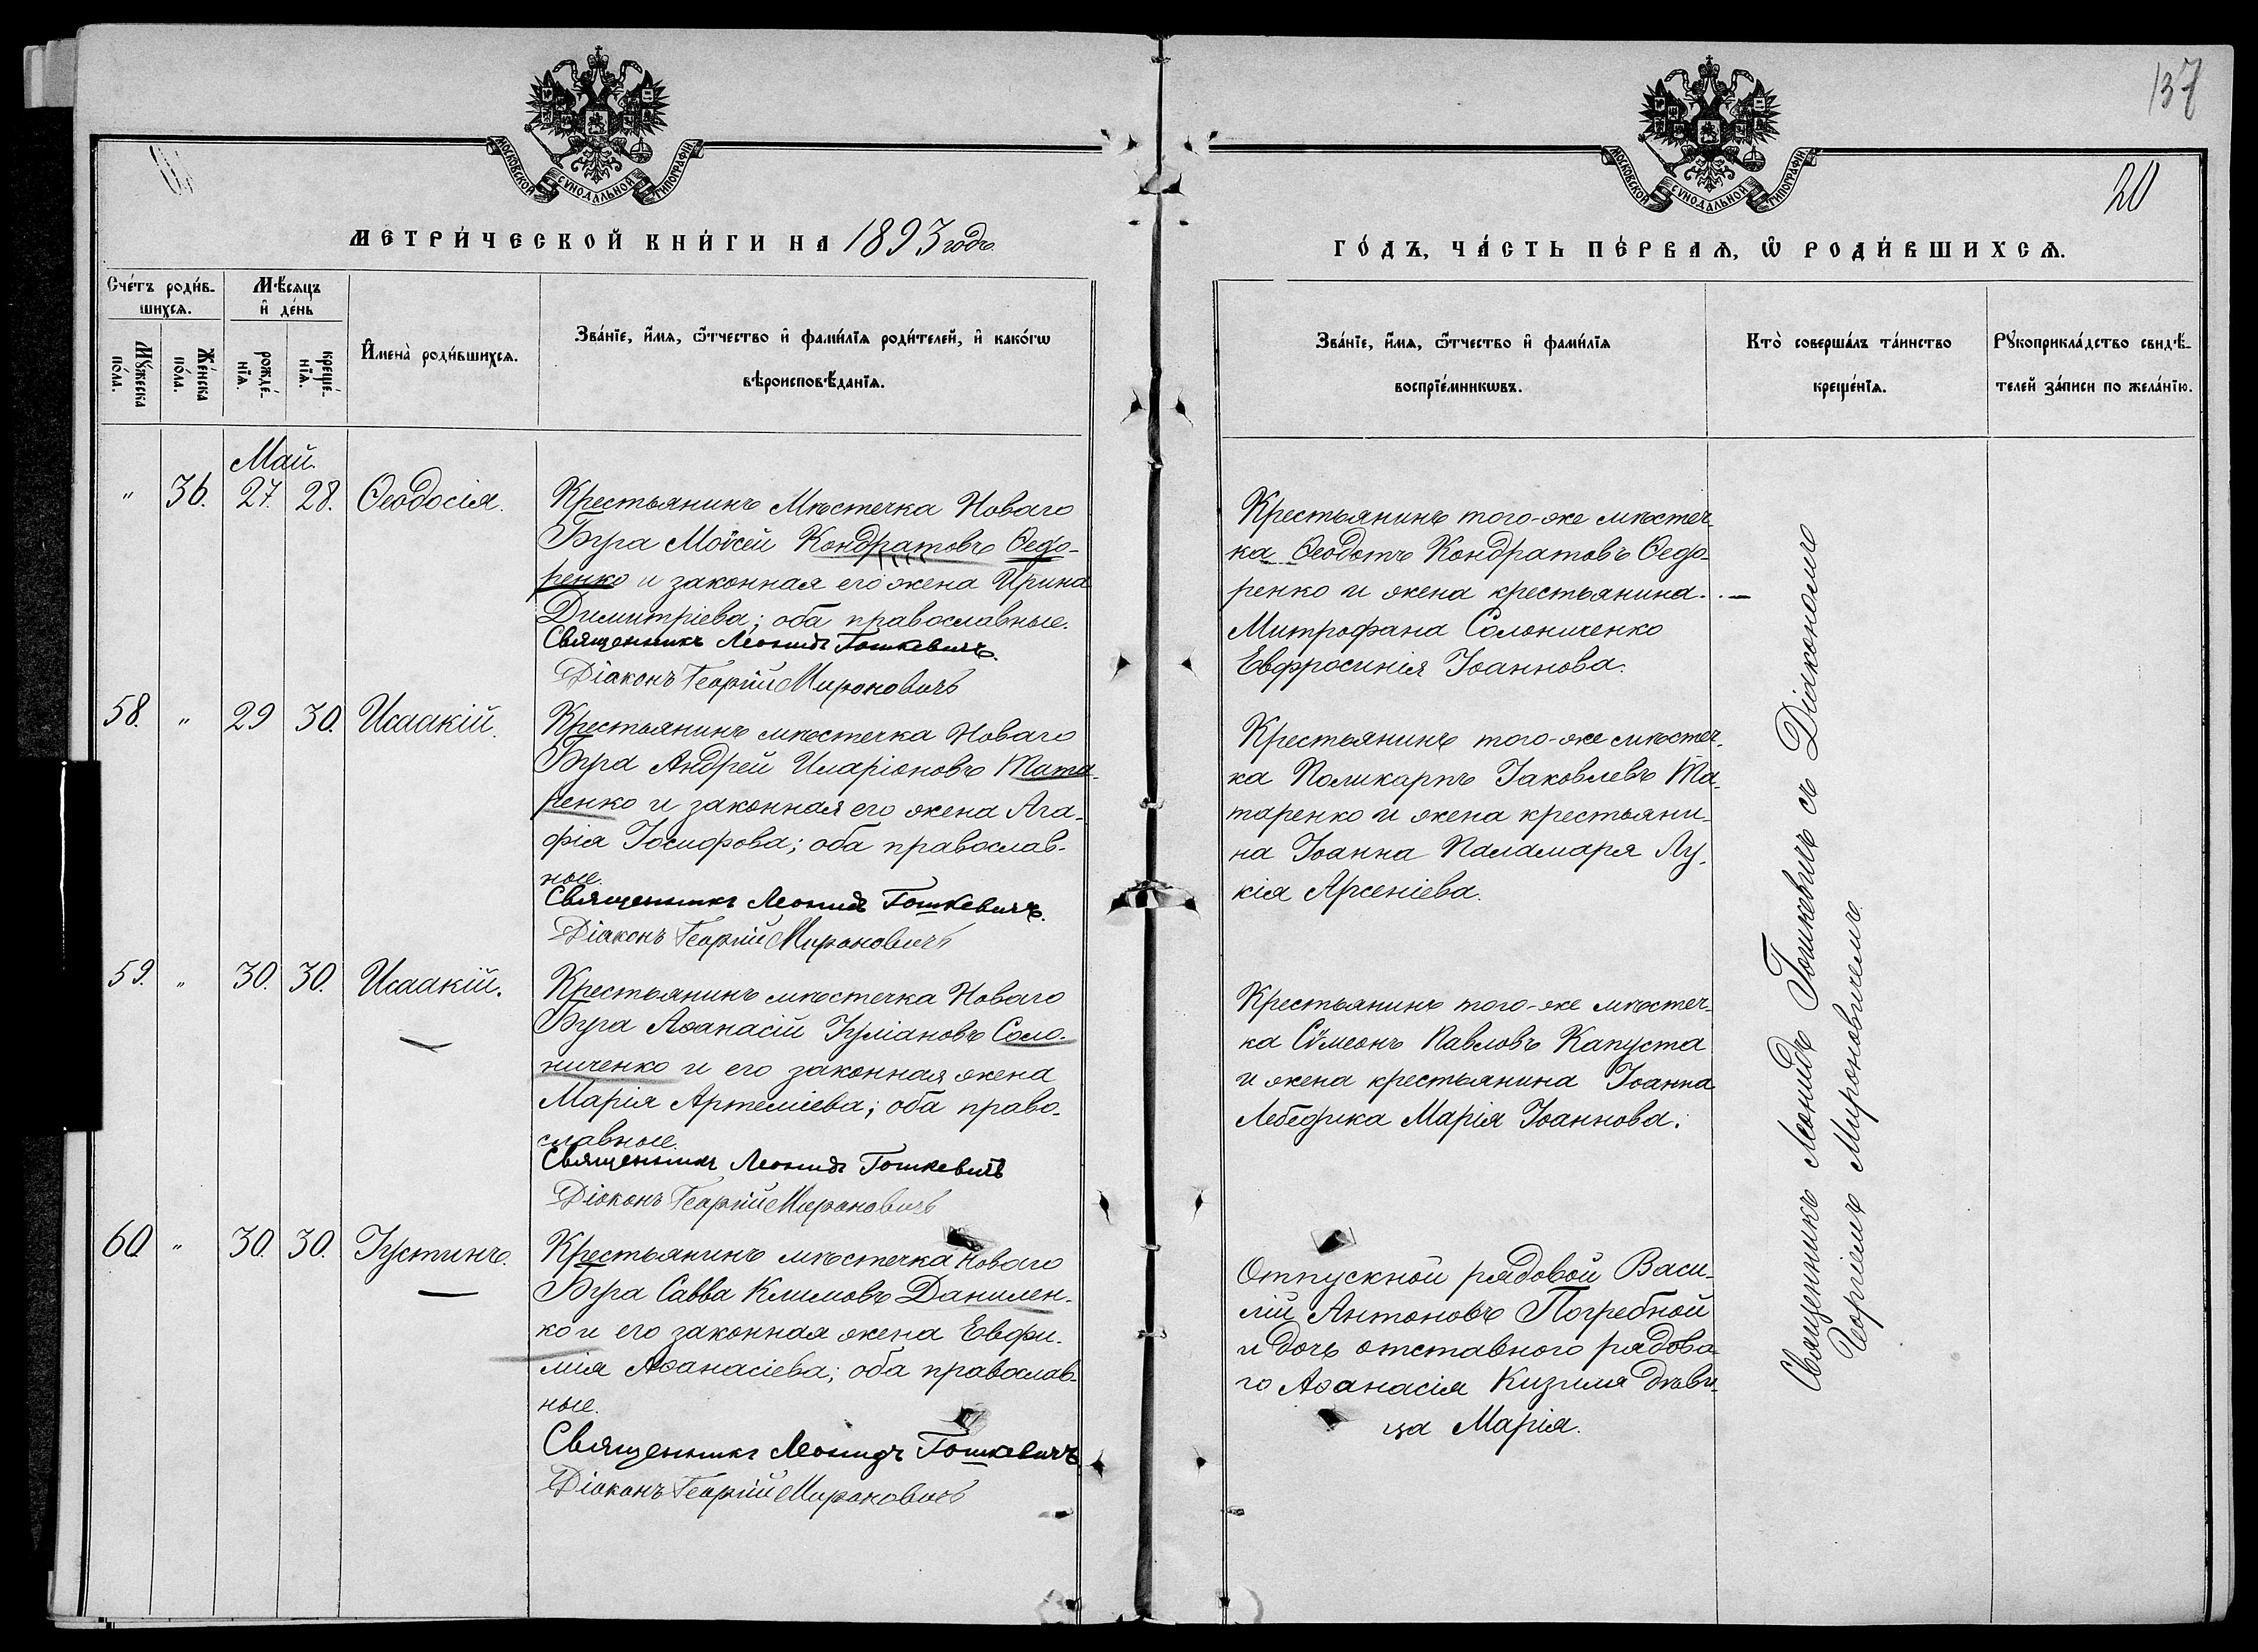 137
20
МОСКОВСКОЙ СѴНОДАЛЬНОЙ ТИПОГРАФІИ
МОСКОВСКОЙ СѴНОДАЛЬНОЙ ТИПОГРАФІИ
МЕТРИ́ЧЕСКОЙ КНИ́ГИ НА 1893 годъ.
ГО́ДЪ, ЧА́СТЬ ПЕ́РВАѦ, Ѽ РОДИ́ВШИХСѦ.
Сче́тъ роди́в-
шихсѧ.
Мꙋ́жеска
по́ла.
Же́нска
по́ла.
Мѣ́сѧцъ
и҆ де́нь
рожде́-
нїѧ.
креще́-
нїѧ.
И҆мена̀ роди́вшихсѧ.
Зва́нїе, и҆́мѧ, ѻ҆́тчество и҆ фами́лїѧ роди́телей, и҆ како́гѡ
вѣроисповѣ́данїѧ.
Зва́нїе, и҆́мѧ, ѻ҆́тчество и҆ фами́лїѧ
воспрїе́мникѡвъ.
Кто̀ соверша́лъ та́инство
креще́нїѧ.
Рꙋкоприкла́дство свидѣ́-
телей за́писи по жела́нїю.
Май.
" 36. 27. 28. Ѳеодосія.
Крестьянинъ Мѣстечка Новаго
Буга Моѵсей Кондратовъ Ѳедо-
ренко и законная его жена Ирина
Димитріева; оба православные.
Священникъ Леонидъ Гошкевичъ.
Діаконъ Георгій Мироновичъ
Крестьянинъ того-же мѣстеч-
ка Ѳеодотъ Кондратовъ Ѳедо-
ренко и жена крестьянина
Митрофана Солониченко
Евфросинія Іоаннова.
58. " 29 30. Исаакій.
Крестьянинъ мѣстечка Новаго
Буга Андрей Иларіоновъ Тата-
ренко и законная его жена Ага-
фія Іосифова; оба православ-
ные.
Священникъ Леонидъ Гошкевичъ.
Діаконъ Георгій Мироновичъ
Крестьянинъ того-же мѣстеч-
ка Поликарпъ Іаковлевъ Та-
таренко и жена крестьяни-
на Іоанна Паламаря Лу-
кія Арсеніева.
59. " 30. 30. Исаакій.
Крестьянинъ мѣстечка Новаго
Буга Аѳанасій Іуліановъ Соло-
ниченко и его законная жена
Марія Артеміева; оба право-
славные.
Священникъ Леонидъ Гошкевичъ
Діаконъ Георгій Мироновичъ
Крестьянинъ того-же мѣстеч-
ка Сѵмеонъ Павловъ Капуста
и жена крестьянина Іоанна
Лебедика Марія Іоаннова.
60 " 30. 30. Іустинъ.
Крестьянинъ мѣстечка Новаго
Буга Савва Климовъ Данилен-
ко и его законная жена Евфи-
мія Аѳанасіева; оба православ-
ные.
Священникъ Леонидъ Гошкевичъ
Діаконъ Георгій Мироновичъ
Отпускной рядовой Васи-
лій Антоновъ Погребной
и дочь отставного рядова-
го Аѳанасія Кизима дѣви-
ца Марія.
Священникъ Леонидъ Гошкевичъ съ Діакономъ
Георгіемъ Мироновичемъ.